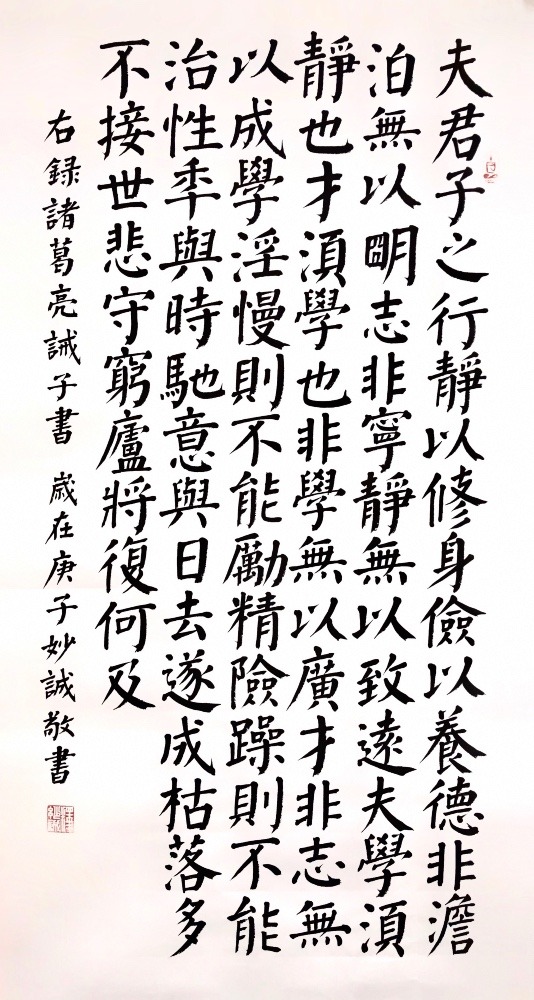 夫君子之行靜以修身儉以養德非澹
泊無以朙志非寧靜無以致遠夫學湏
靜也才湏學也非學無以廣才非志無
以成學淫慢則不能勵精險躁則不能
治性秊與時馳意與日去遂成枯落多
不接世悲守窮廬將復何及
右録諸葛亮誡子書 歲在庚子妙誠敬書